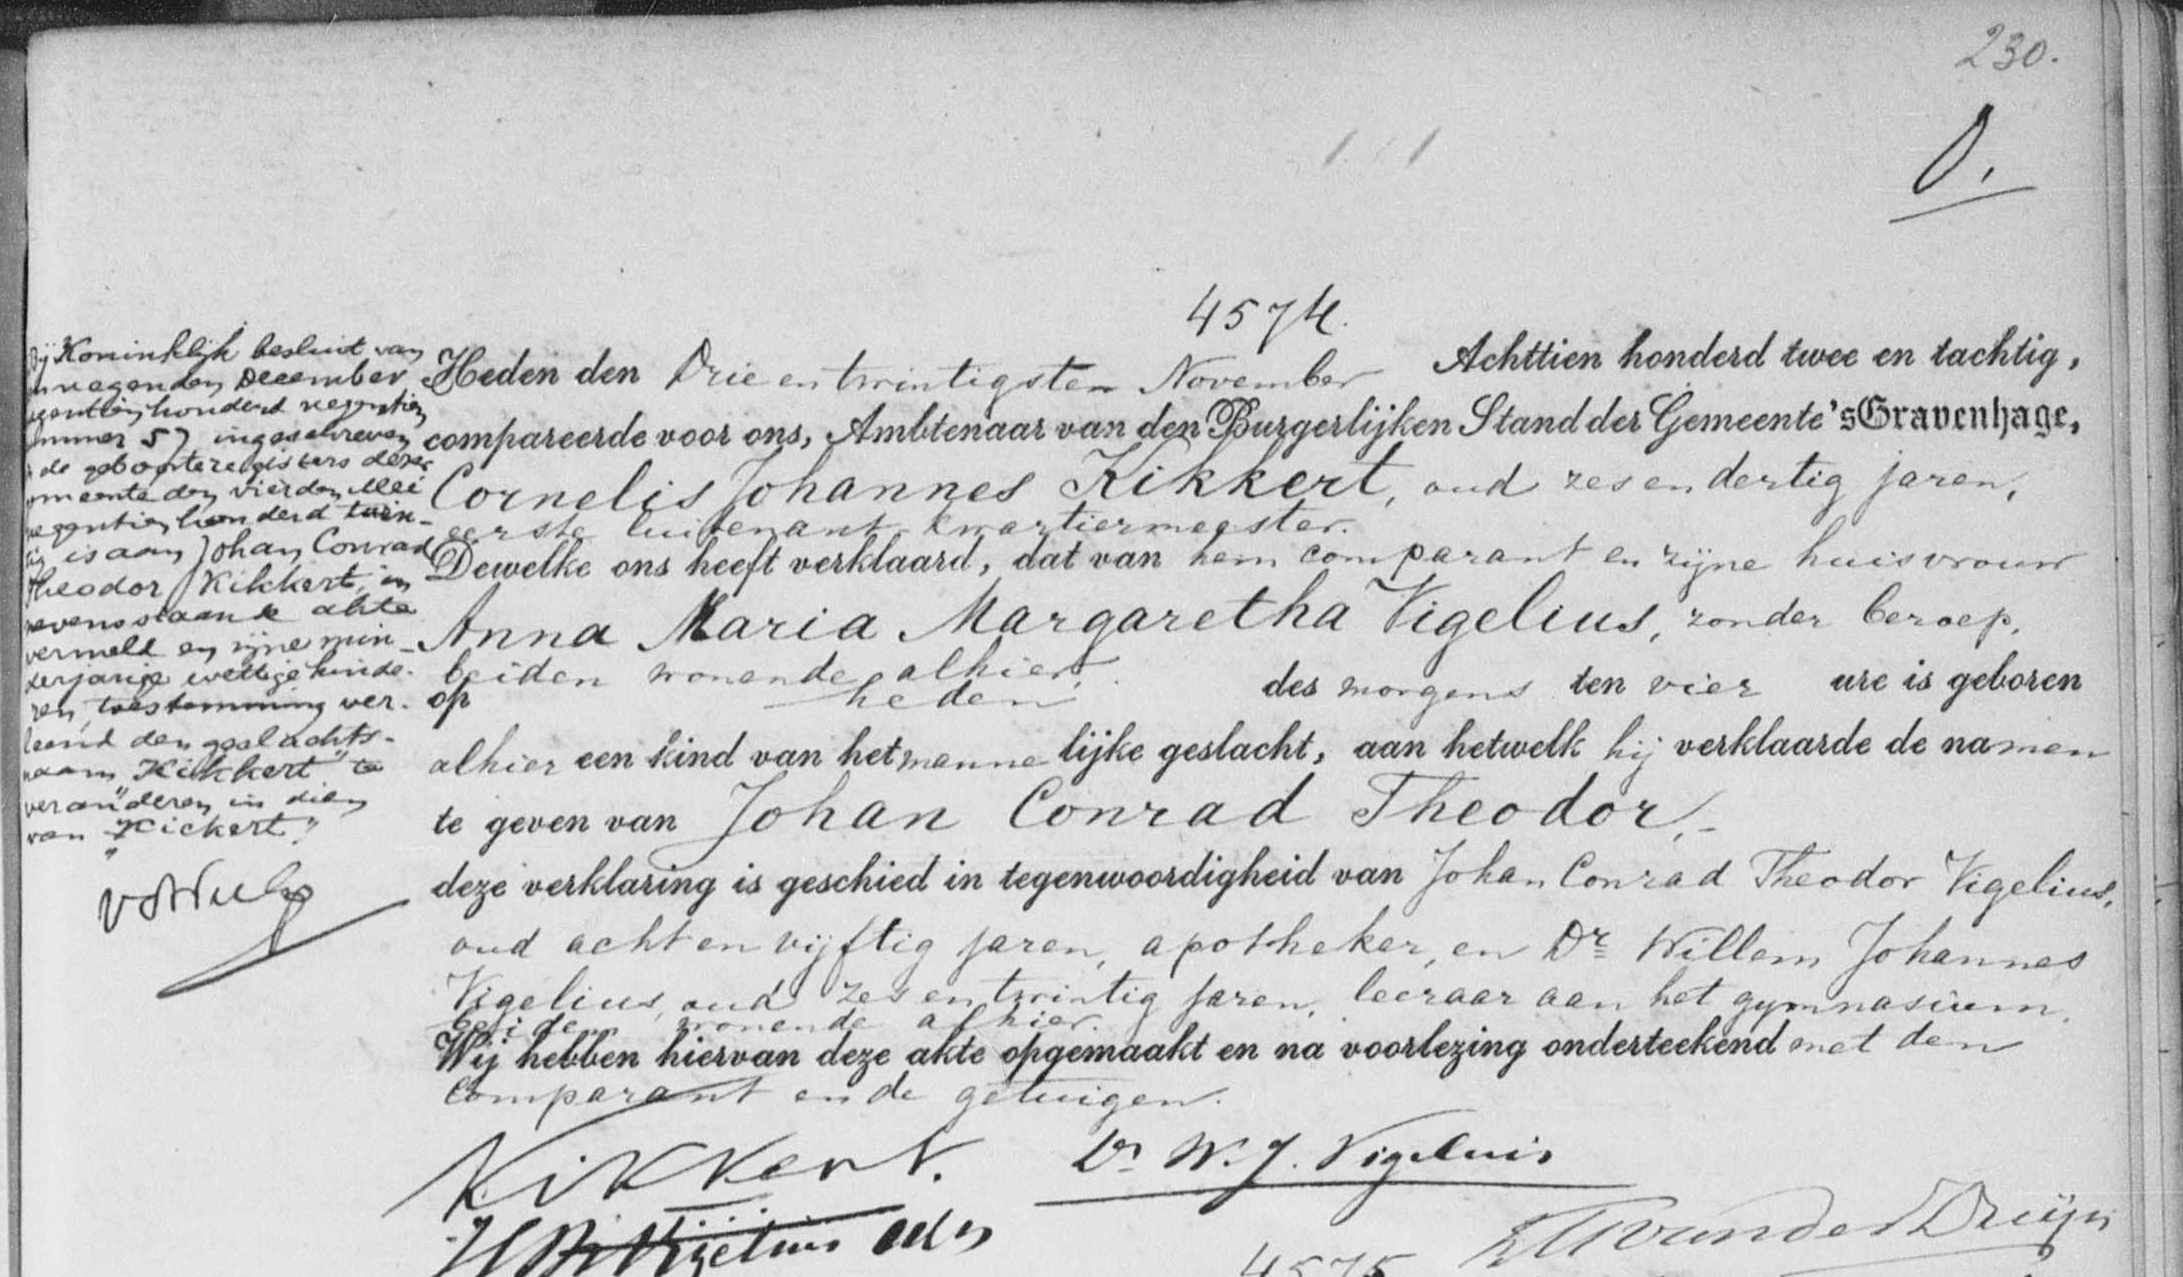 230.
O.
4574.
Bij Koninklijk besluit van
negenden December
negentien honderd negentien
nummer 57 ingeschreven
in de geboorteregisters dezer
gemeente den vierden Mei
negentien honderd twin-
tig is aan Johan Conrad
Theodor Kikkert, in
nevensstaande akte
vermeld en zijne min-
derjarige wettige kinde-
ren, toestemming ver-
leend den geslachts-
naam "Kikkert" te
veranderen in dien
van "Kickert".
Heden den Drie en twintigsten November Achttien honderd twee en tachtig,
compareerde voor ons, Ambtenaar van den Burgerlijken Stand der Gemeente 's Gravenhage,
Cornelis Johannes Kikkert, oud zes en dertig jaren,
eerste luitenant kwartiermeester.
Dewelke ons heeft verklaard, dat van hem comparant en zijne huisvrouw
Anna Maria Margaretha Vigelius, zonder beroep,
beiden wonende alhier,
op heden des morgens ten vier ure is geboren
alhier een kind van het mannelijke geslacht, aan hetwelk hij verklaarde de namen
te geven van Johan Conrad Theodor,-
deze verklaring is geschied in tegenwoordigheid van Johan Conrad Theodor Vigelius,
oud acht en vijftig jaren, apotheker, en Dr. Willem Johannes
Vigelius, oud zes en twintig jaren, leeraar aan het gymnasium,
beiden wonende alhier.
Wij hebben hiervan deze akte opgemaakt en na voorlezing onderteekend met den
Comparant en de getuigen.
Kikkert.
Dr W. J. Vigelius
4575